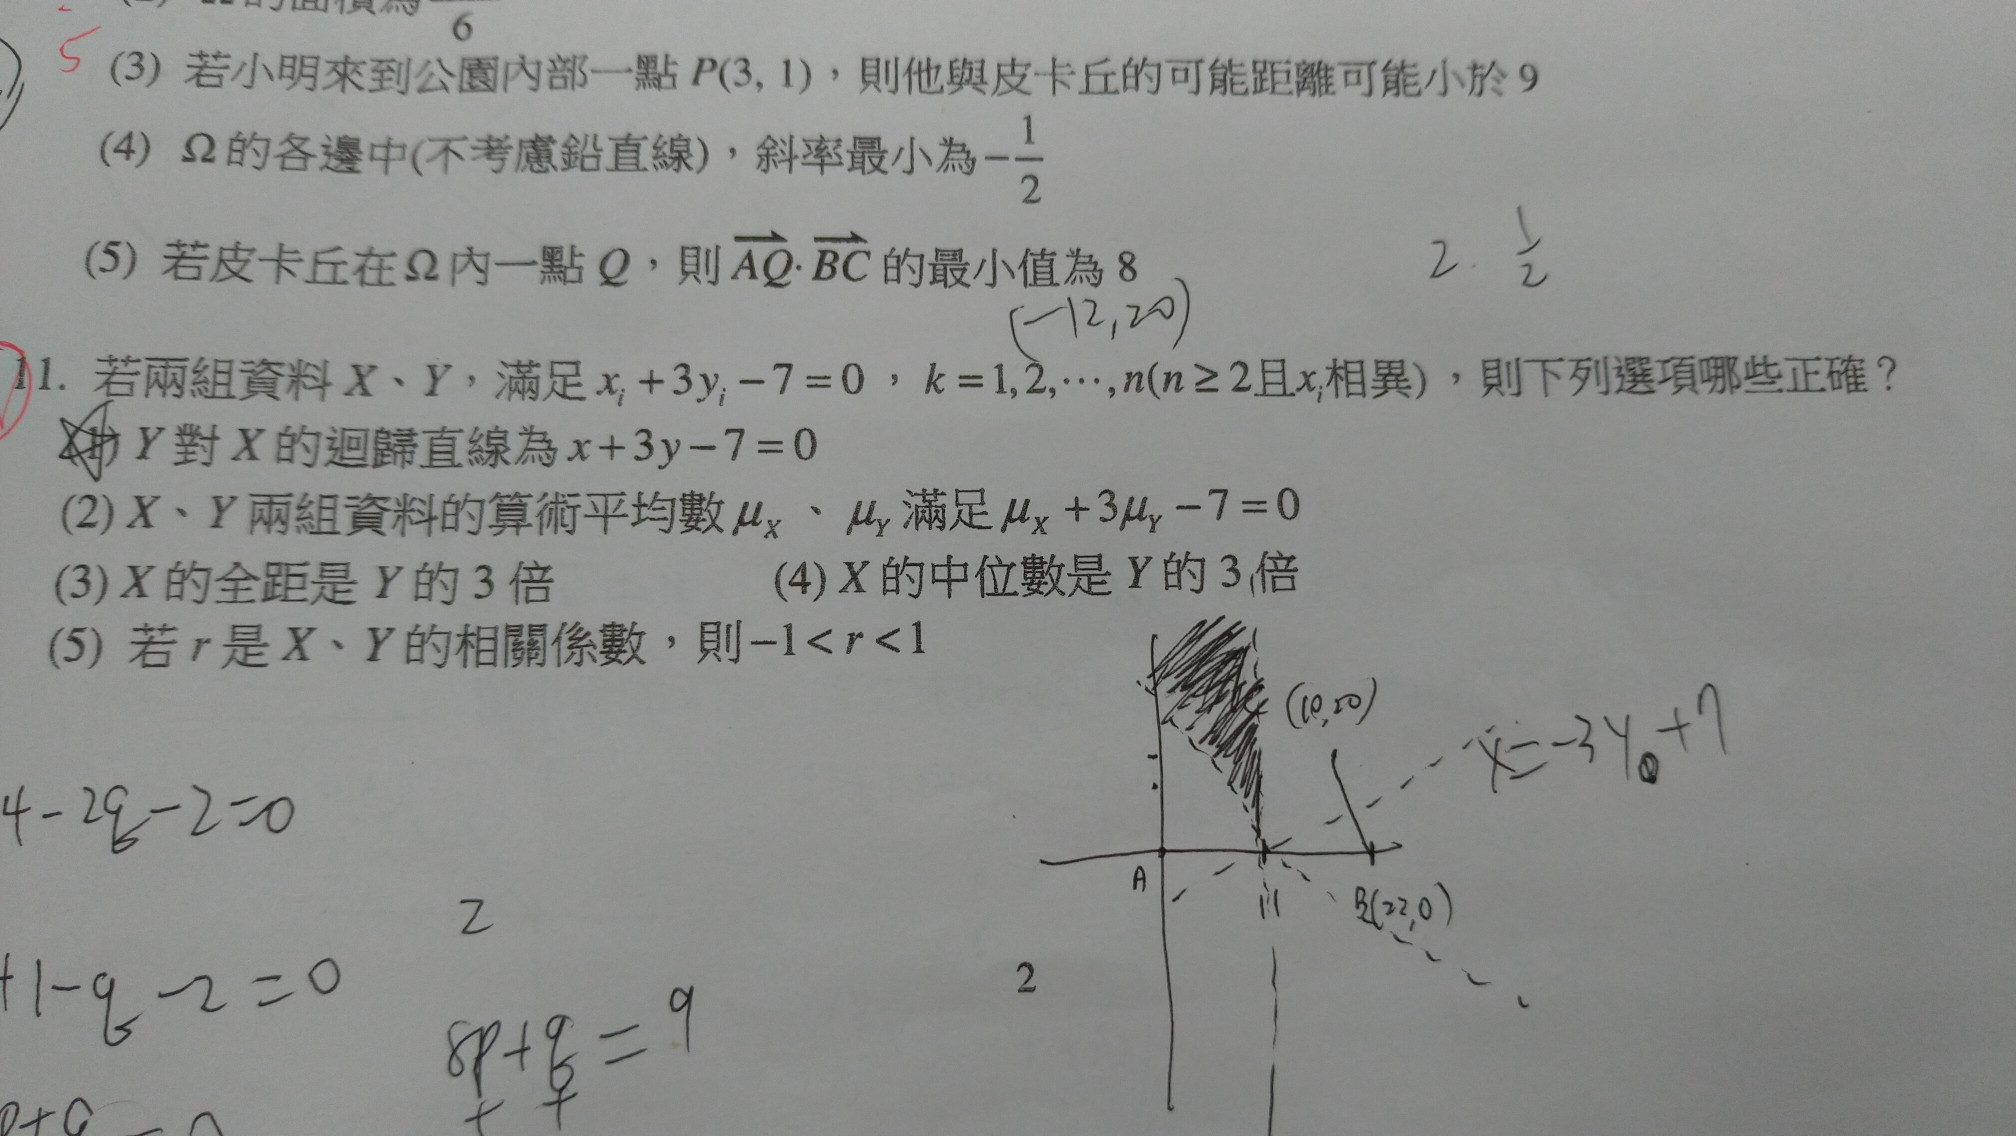 6
5
(3) 若小明來到公園內部一點 P(3, 1),則他與皮卡丘的可能距離可能小於 9
(4) Ω 的各邊中(不考慮鉛直線),斜率最小為 -1/2
2. 1/2
(5) 若皮卡丘在 Ω 內一點 Q,則 AQ·BC 的最小值為 8
(-12,20)
11. 若兩組資料 X、Y,滿足 xᵢ+3yᵢ-7=0,k=1,2,⋯,n(n≥2且xᵢ相異),則下列選項哪些正確?
(1) Y 對 X 的迴歸直線為 x+3y-7=0
(2) X、Y 兩組資料的算術平均數 μ_X、μ_Y 滿足 μ_X+3μ_Y-7=0
(3) X 的全距是 Y 的 3 倍 (4) X 的中位數是 Y 的 3 倍
(5) 若 r 是 X、Y 的相關係數,則 -1<r<1
(10,20)
x=-3y+7
4-2q-2=0
A
11
B(22,0)
2
+1-q-2=0
8p+q=9